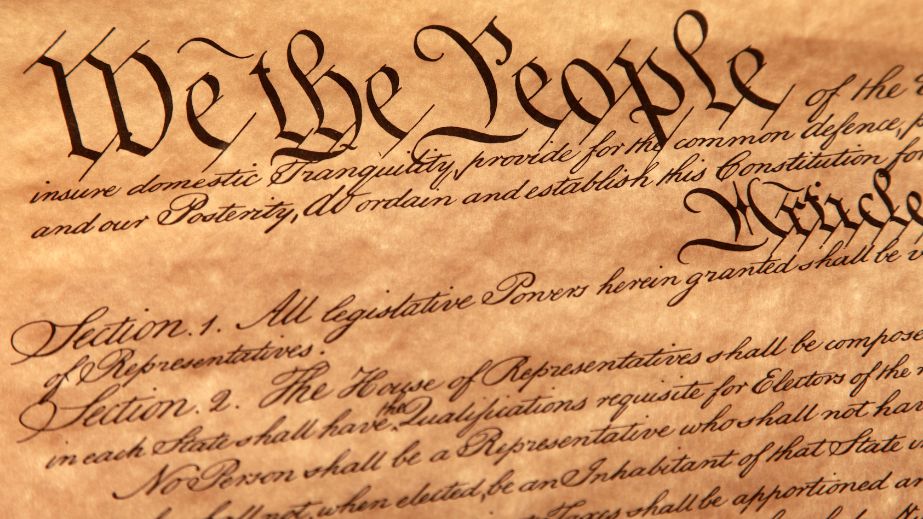 We the People of the
insure domestic Tranquility, provide for the common defence,
and our Posterity, do ordain and establish this Constitution for
Article
Section. 1. All legislative Powers herein granted shall be
of Representatives.
Section. 2. The House of Representatives shall be compose
in each State shall have the Qualifications requisite for Electors of the
No Person shall be a Representative who shall not have
shall not, when elected, be an Inhabitant of that State
Taxes shall be apportioned